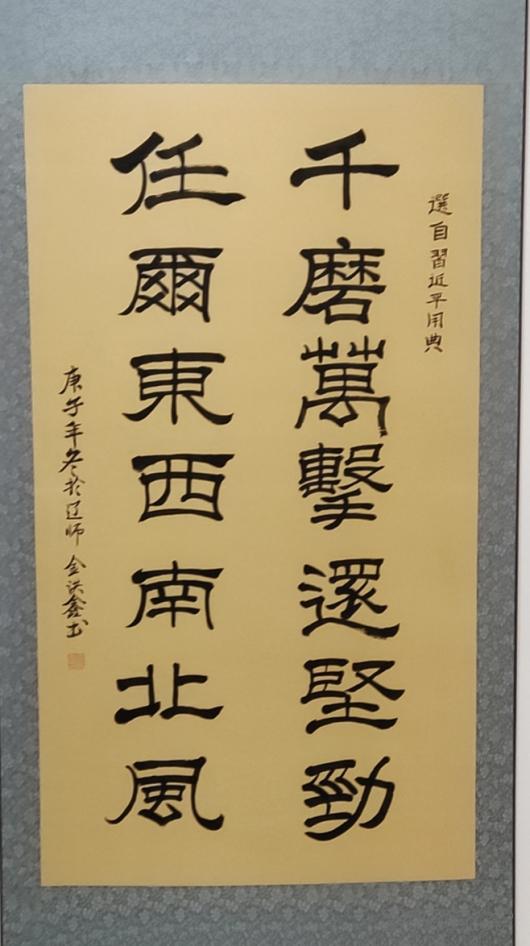 選自習近平用典
千磨萬擊還堅勁
任爾東西南北風
庚子年冬於辽师 金洪鑫书